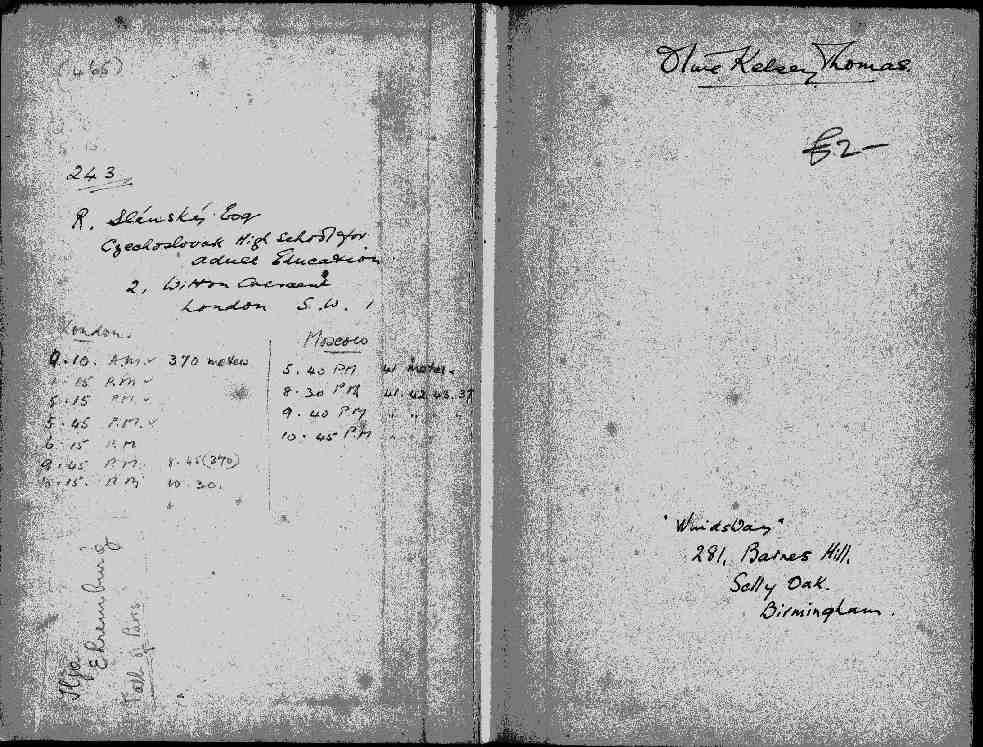 (466)
243
R. Slánský Esq
Czechoslovak High School for
adult Education
2, Wilton Crescent
London S.W. 1
London.
9.10. A.M. 370 metres
1.15 P.M.
5.15 P.M.
5.45 P.M.
6.15 P.M
9.45 P.M. 8.45 (370)
P.M. 10.30.
Moscow
5.40 PM 41 metres
8.30 PM 41.42.45.37
9.40 PM " "
10.45 PM
Ilya
Ehrenburg
Fall of Paris.
Olive Kelsey Thomas.
£2-
281, Barnes Hill,
Selly Oak.
Birmingham.